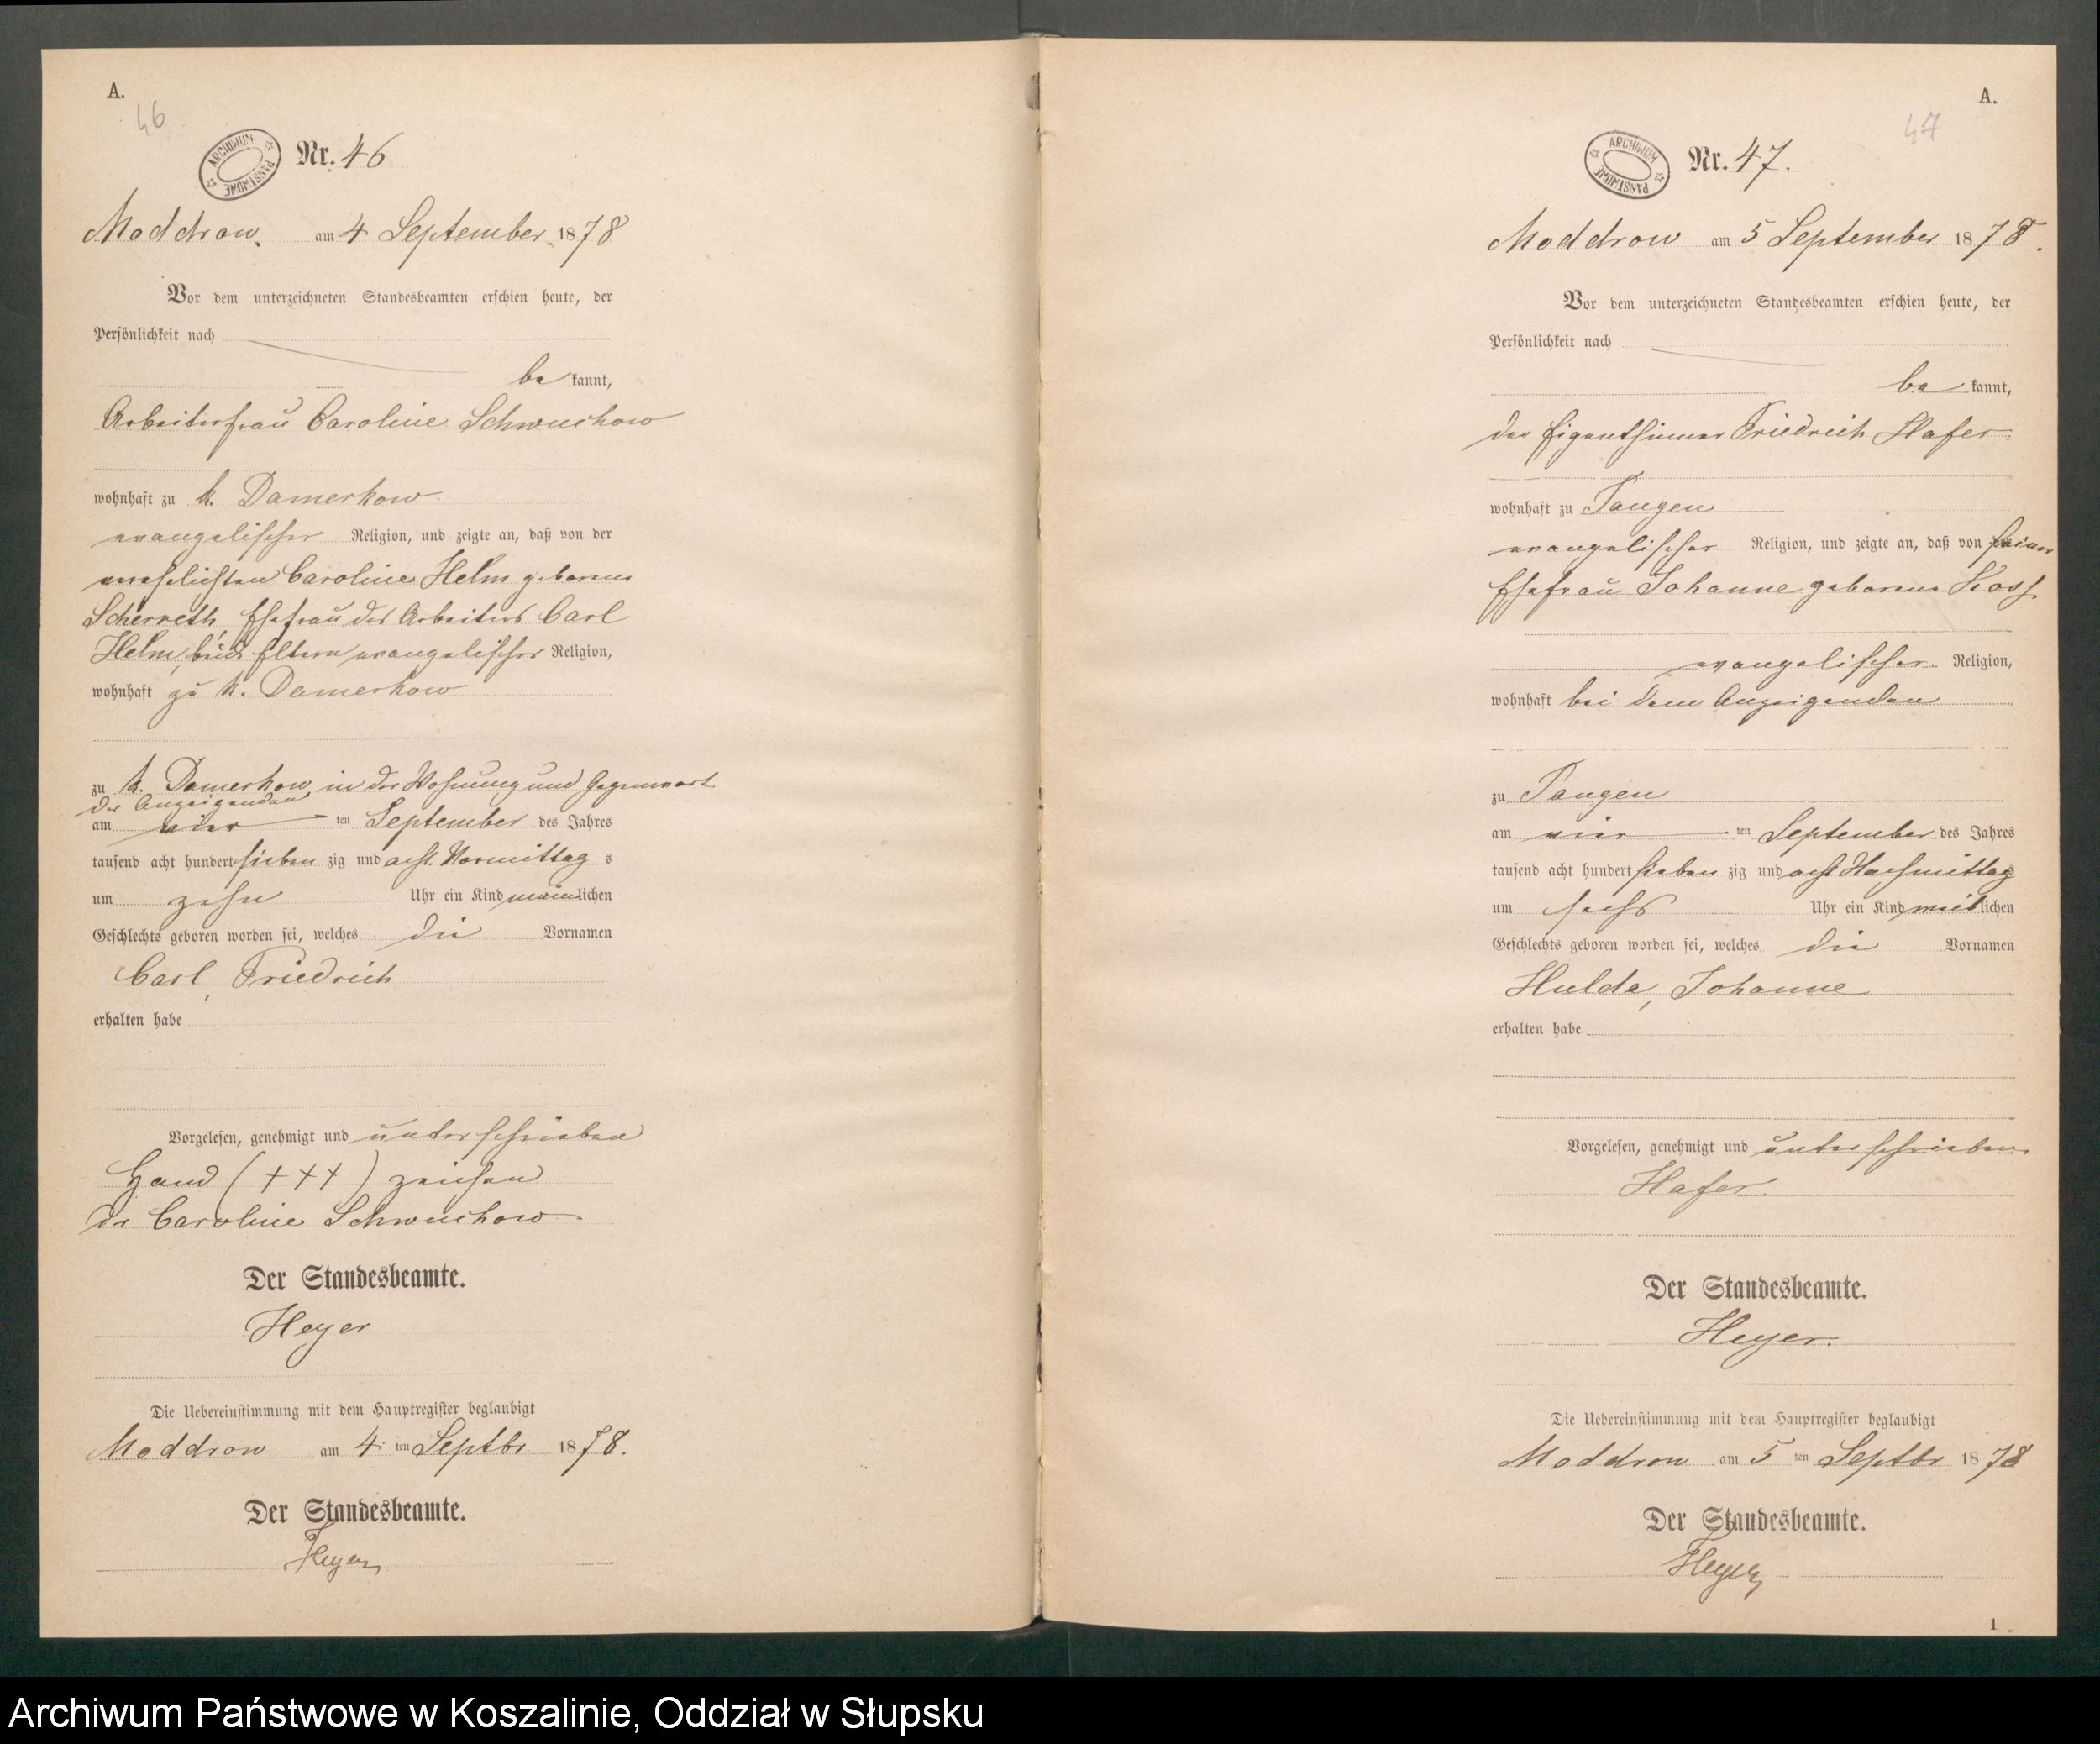 A.
46
ARCHIWUM PAŃSTWOWE
Nr. 46
Moddrow, am 4 September 1878
Vor dem unterzeichneten Standesbeamten erschien heute, der
Persönlichkeit nach
bekannt,
Arbeiterfrau Caroline Schwuchow
wohnhaft zu k. Damerkow
evangelischer Religion, und zeigte an, daß von der
verehelichten Caroline Helm geborene
Scherreth, Ehefrau des Arbeiters Carl
Helm, beide Eltern evangelischer Religion,
wohnhaft zu k. Damerkow
zu k. Damerkow in der Wohnung und Gegenwart
der Anzeigenden
am vier ten September des Jahres
tausend acht hundert sieben zig und acht Vormittag s
um zehn Uhr ein Kind männlichen
Geschlechts geboren worden sei, welches die Vornamen
Carl, Friedrich
erhalten habe
Vorgelesen, genehmigt und unterschrieben
Hand (+++) zeichen
der Caroline Schwuchow
Der Standesbeamte.
Heyer
Die Uebereinstimmung mit dem Hauptregister beglaubigt
Moddrow am 4. ten Septbr 1878.
Der Standesbeamte.
Heyer
A.
47
ARCHIWUM PAŃSTWOWE
Nr. 47.
Moddrow am 5 September 1878.
Vor dem unterzeichneten Standesbeamten erschien heute, der
Persönlichkeit nach
bekannt,
der Eigenthümer Friedrich Hafer
wohnhaft zu Tangen
evangelischer Religion, und zeigte an, daß von seiner
Ehefrau Johanne geborene Koss,
evangelischer Religion,
wohnhaft bei dem Anzeigenden
zu Tangen
am vier ten September des Jahres
tausend acht hundert sieben zig und acht Nachmittag
um sechs Uhr ein Kind weiblichen
Geschlechts geboren worden sei, welches die Vornamen
Hulda, Johanne
erhalten habe
Vorgelesen, genehmigt und unterschrieben
Hafer.
Der Standesbeamte.
Heyer.
Die Uebereinstimmung mit dem Hauptregister beglaubigt
Moddrow am 5 ten Septbr 1878
Der Standesbeamte.
Heyer
1
Archiwum Państwowe w Koszalinie, Oddział w Słupsku